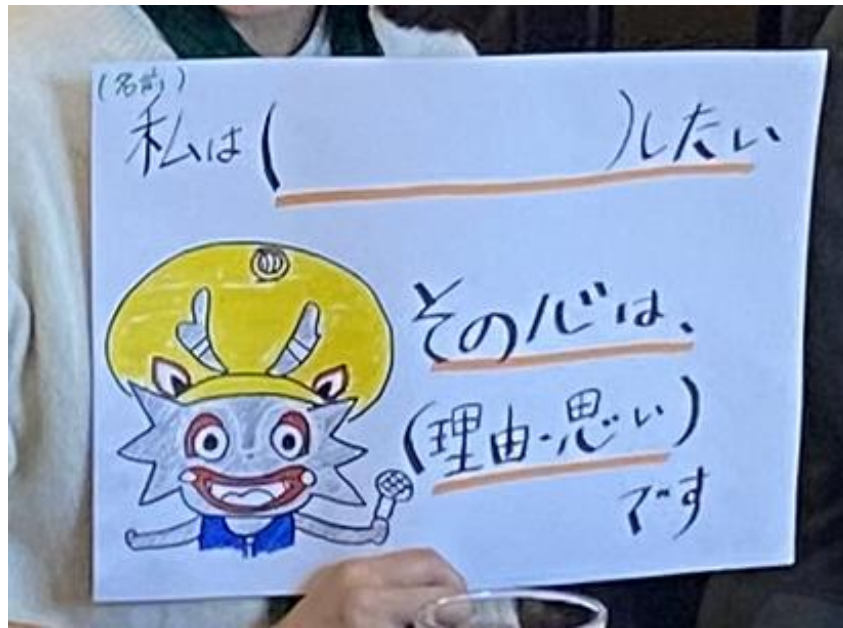 (名前)
私は( )したい
その心は、
(理由・思い)
です